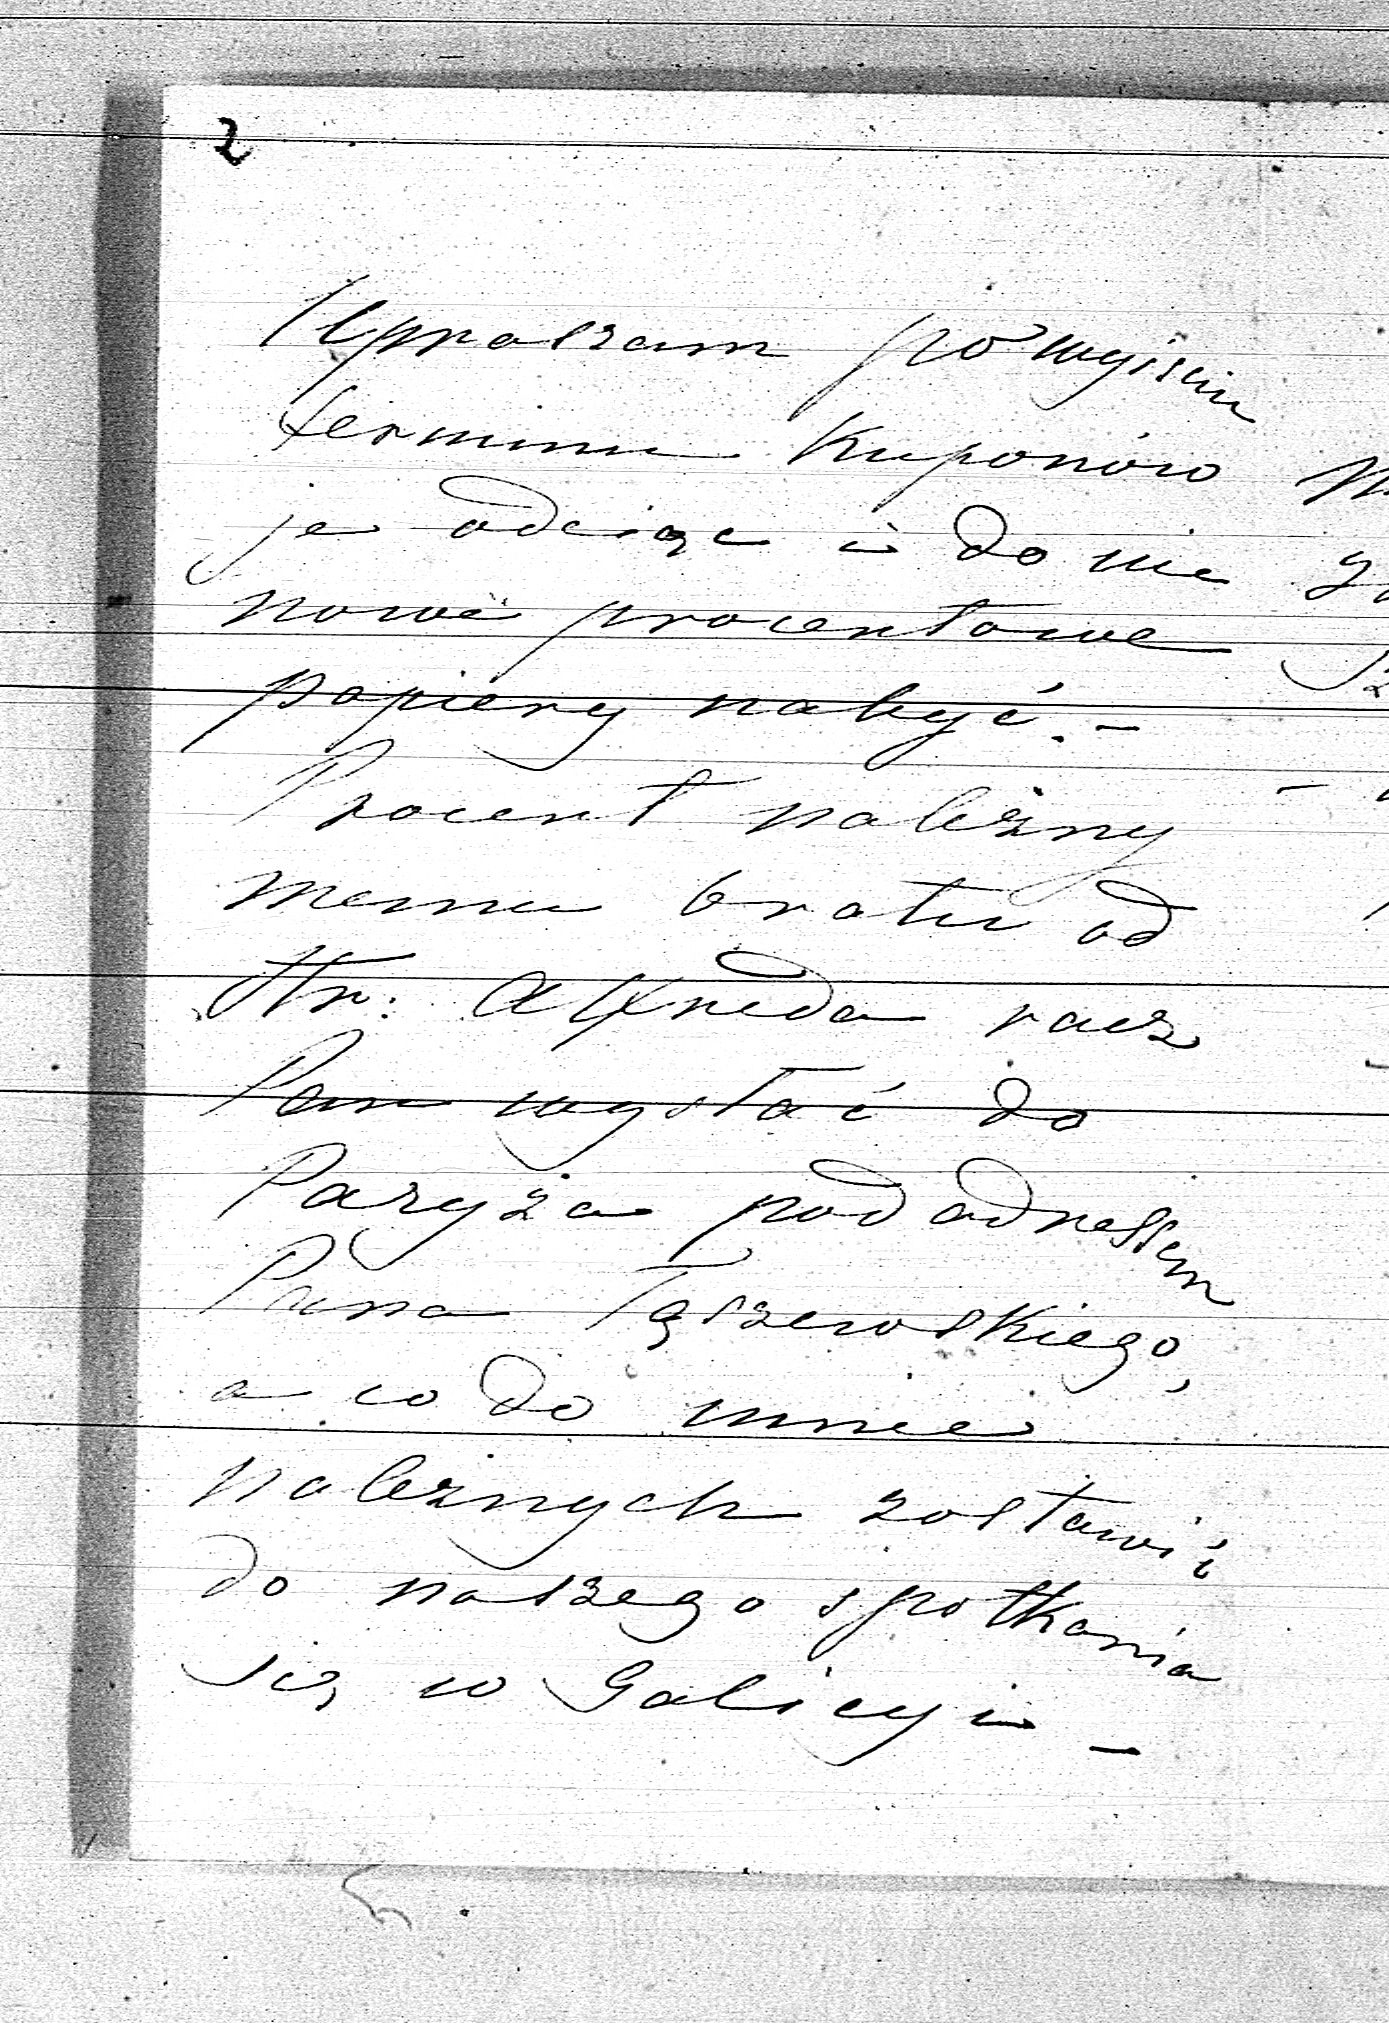 2
Upraszam po wyisciu
terminu Kuponów
je odciąc i do nie
nowe procentowe
papiery nabyć. –
Procent należny
memu bratu od
Hr. Alfreda racz
Pan wysłać do
Paryża pod adressem
Pana Tęszewskiego,
a co do mnie
należnych zostawić
do naszego spotkania
się w Galicyi –